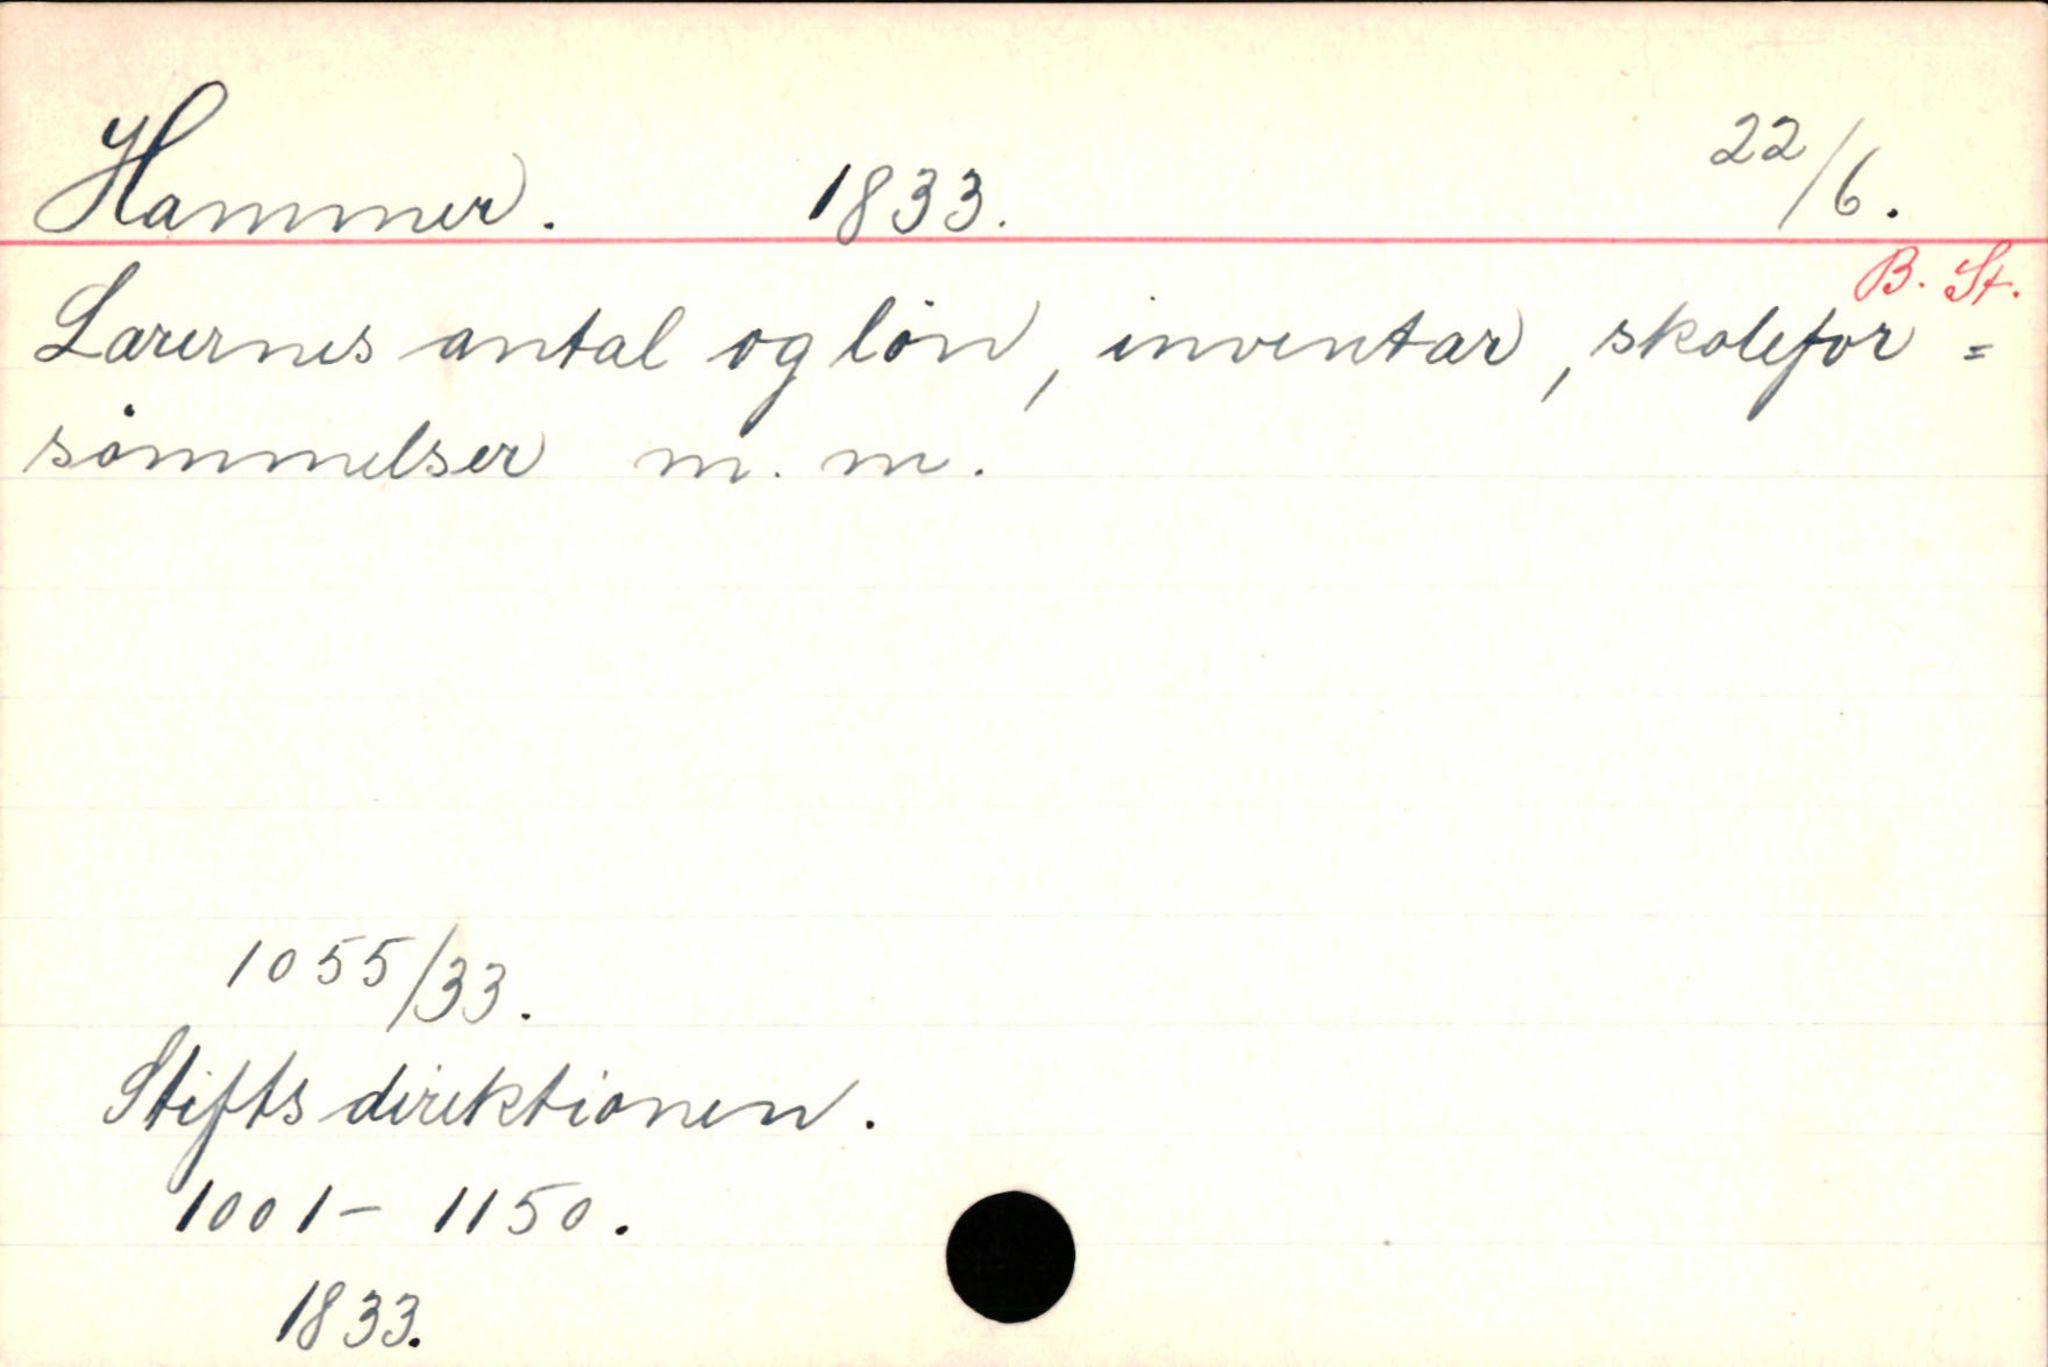 Hammer. 1833. 22/6.
B. St.
Lærernes antal og løn, inventar, skolefor=
sømmelser m. m.
1055/33.
Stiftsdirektionen.
1001- 1150.
1833.